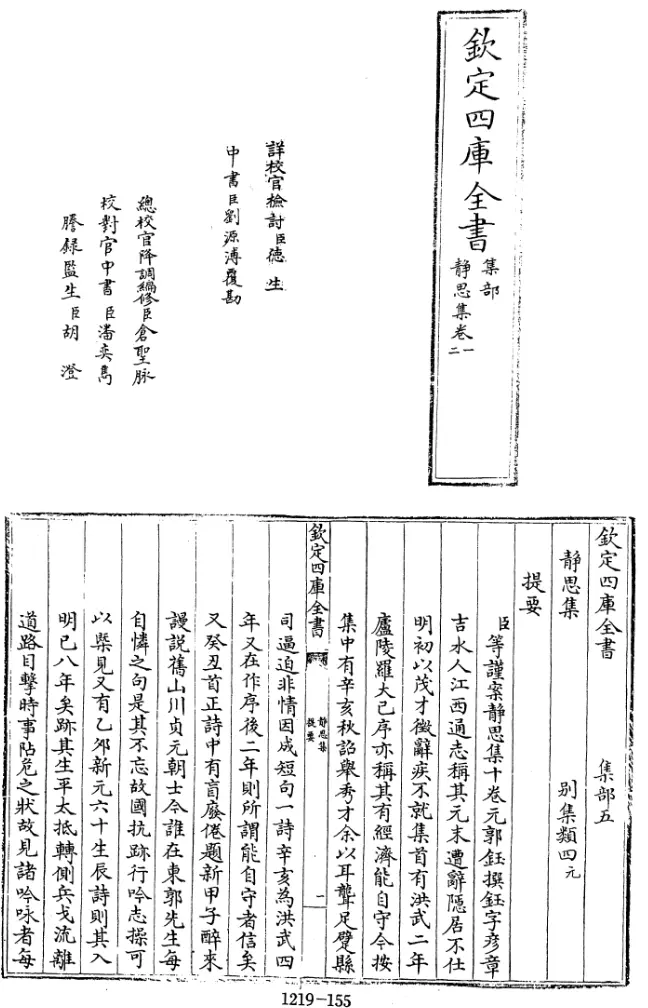 欽定四庫全書
集部
靜思集卷一
二
詳校官檢討臣德生
中書臣劉源溥覆勘
總校官降調編修臣倉聖脉
校對官中書臣潘奕雋
謄録監生臣胡澄
欽定四庫全書　集部五
靜思集　別集類四元
提要
臣等謹案靜思集十卷元郭鈺撰鈺字彦章
吉水人江西通志稱其元末遭辭隱居不仕
明初以茂才徵辭疾不就集首有洪武二年
廬陵羅大已序亦稱其有經濟能自守今按
集中有辛亥秋詔舉秀才余以耳聾足躄縣
欽定四庫全書
靜思集
提要
一
司逼迫非情因成短句一詩辛亥為洪武四
年又在作序後二年則所謂能自守者信矣
又癸丑首正詩中有盲廢倦題新甲子醉來
謾説舊山川貞元朝士今誰在東郭先生每
自憐之句是其不忘故國抗跡行吟志操可
以槩見又有乙夘新元六十生辰詩則其入
明已八年矣跡其生平大抵轉側兵戈流離
道路目擊時事阽危之狀故見諸吟咏者每
1219-155